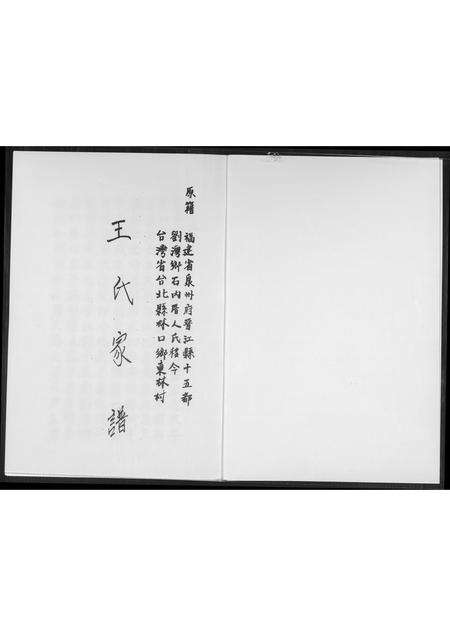 原籍
福建省泉州府晋江縣十五都
劉灣鄉石內厝人氏移今
台灣省台北縣林口鄉東林村
王氏家譜